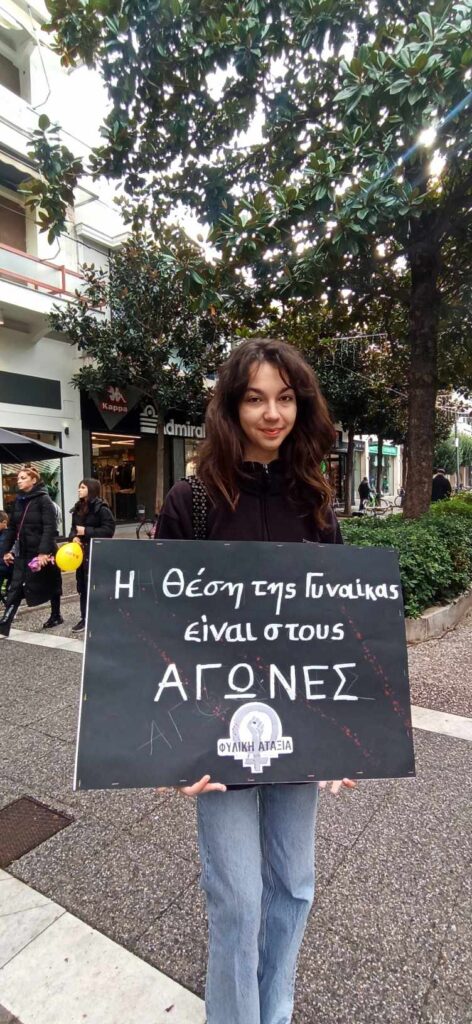 Kappa
admiral
Η Θέση της Γυναίκας
είναι στους
ΑΓΩΝΕΣ
ΦΥΛΙΚΗ ΑΤΑΞΙΑ